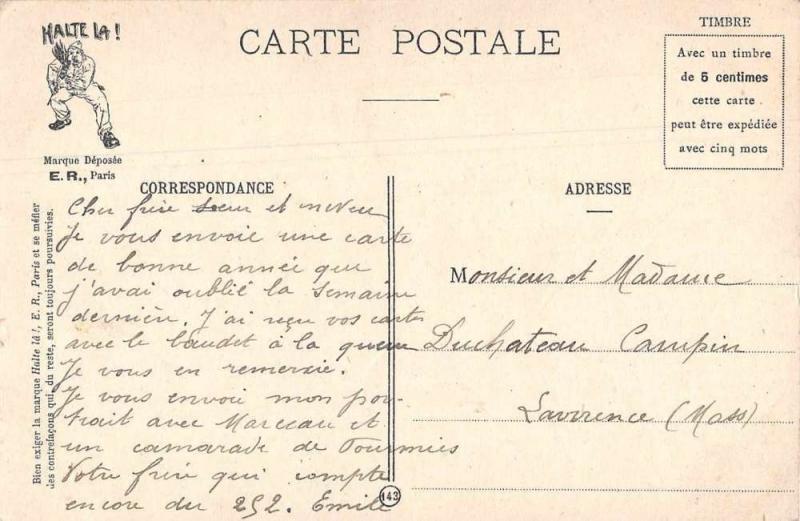 HALTE LA !
Marque Déposée
E. R., Paris
CARTE POSTALE
TIMBRE
Avec un timbre
de 5 centimes
cette carte
peut être expédiée
avec cinq mots
Bien exiger la marque Halte là !, E. R., Paris et se méfier
des contrefaçons qui, du reste, seront toujours poursuivies.
CORRESPONDANCE
Cher frère sœur et neveu
Je vous envoie une carte
de bonne année que
j'avai oublié la semaine
dernière. J'ai reçu vos cartes
avec le baudet à la queue
Je vous en remercie.
Je vous envoie mon por-
trait avec Marceau et
un camarade de Fourmies
Votre frère qui compte
encore du 252. Emile
143
ADRESSE
Monsieur et Madame
Duchateau Campin
Lawrence (Mass)